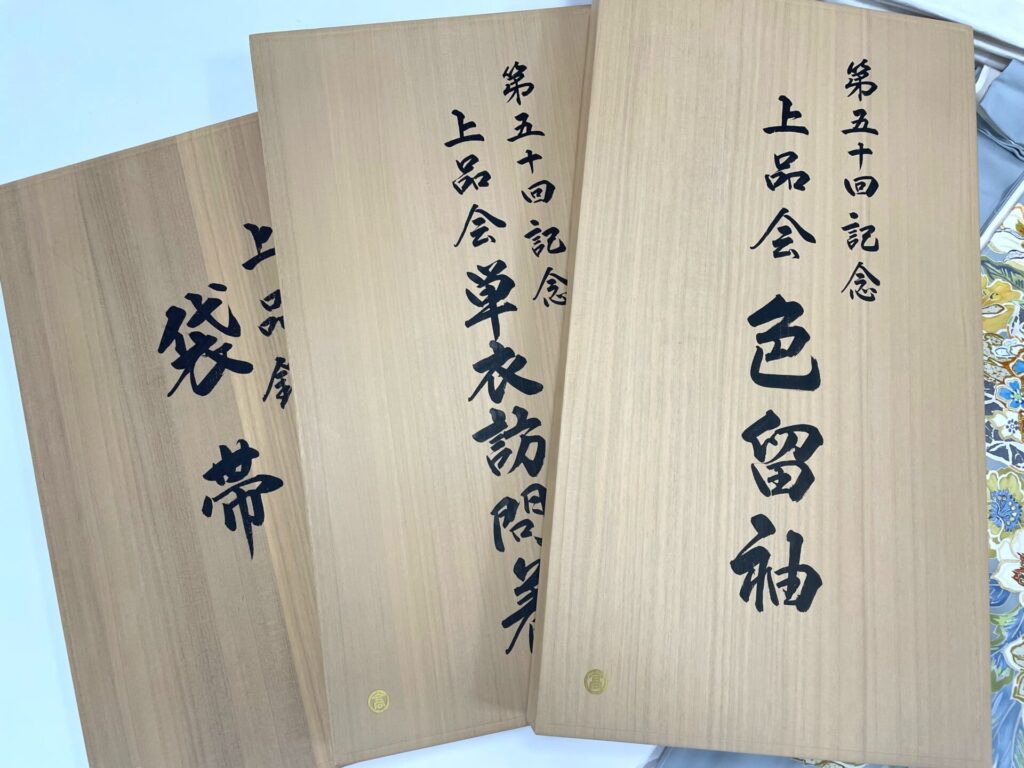 第五十回記念
上品会 色留袖
高
第五十回記念
上品会 単衣訪問着
高
上品会
袋帯